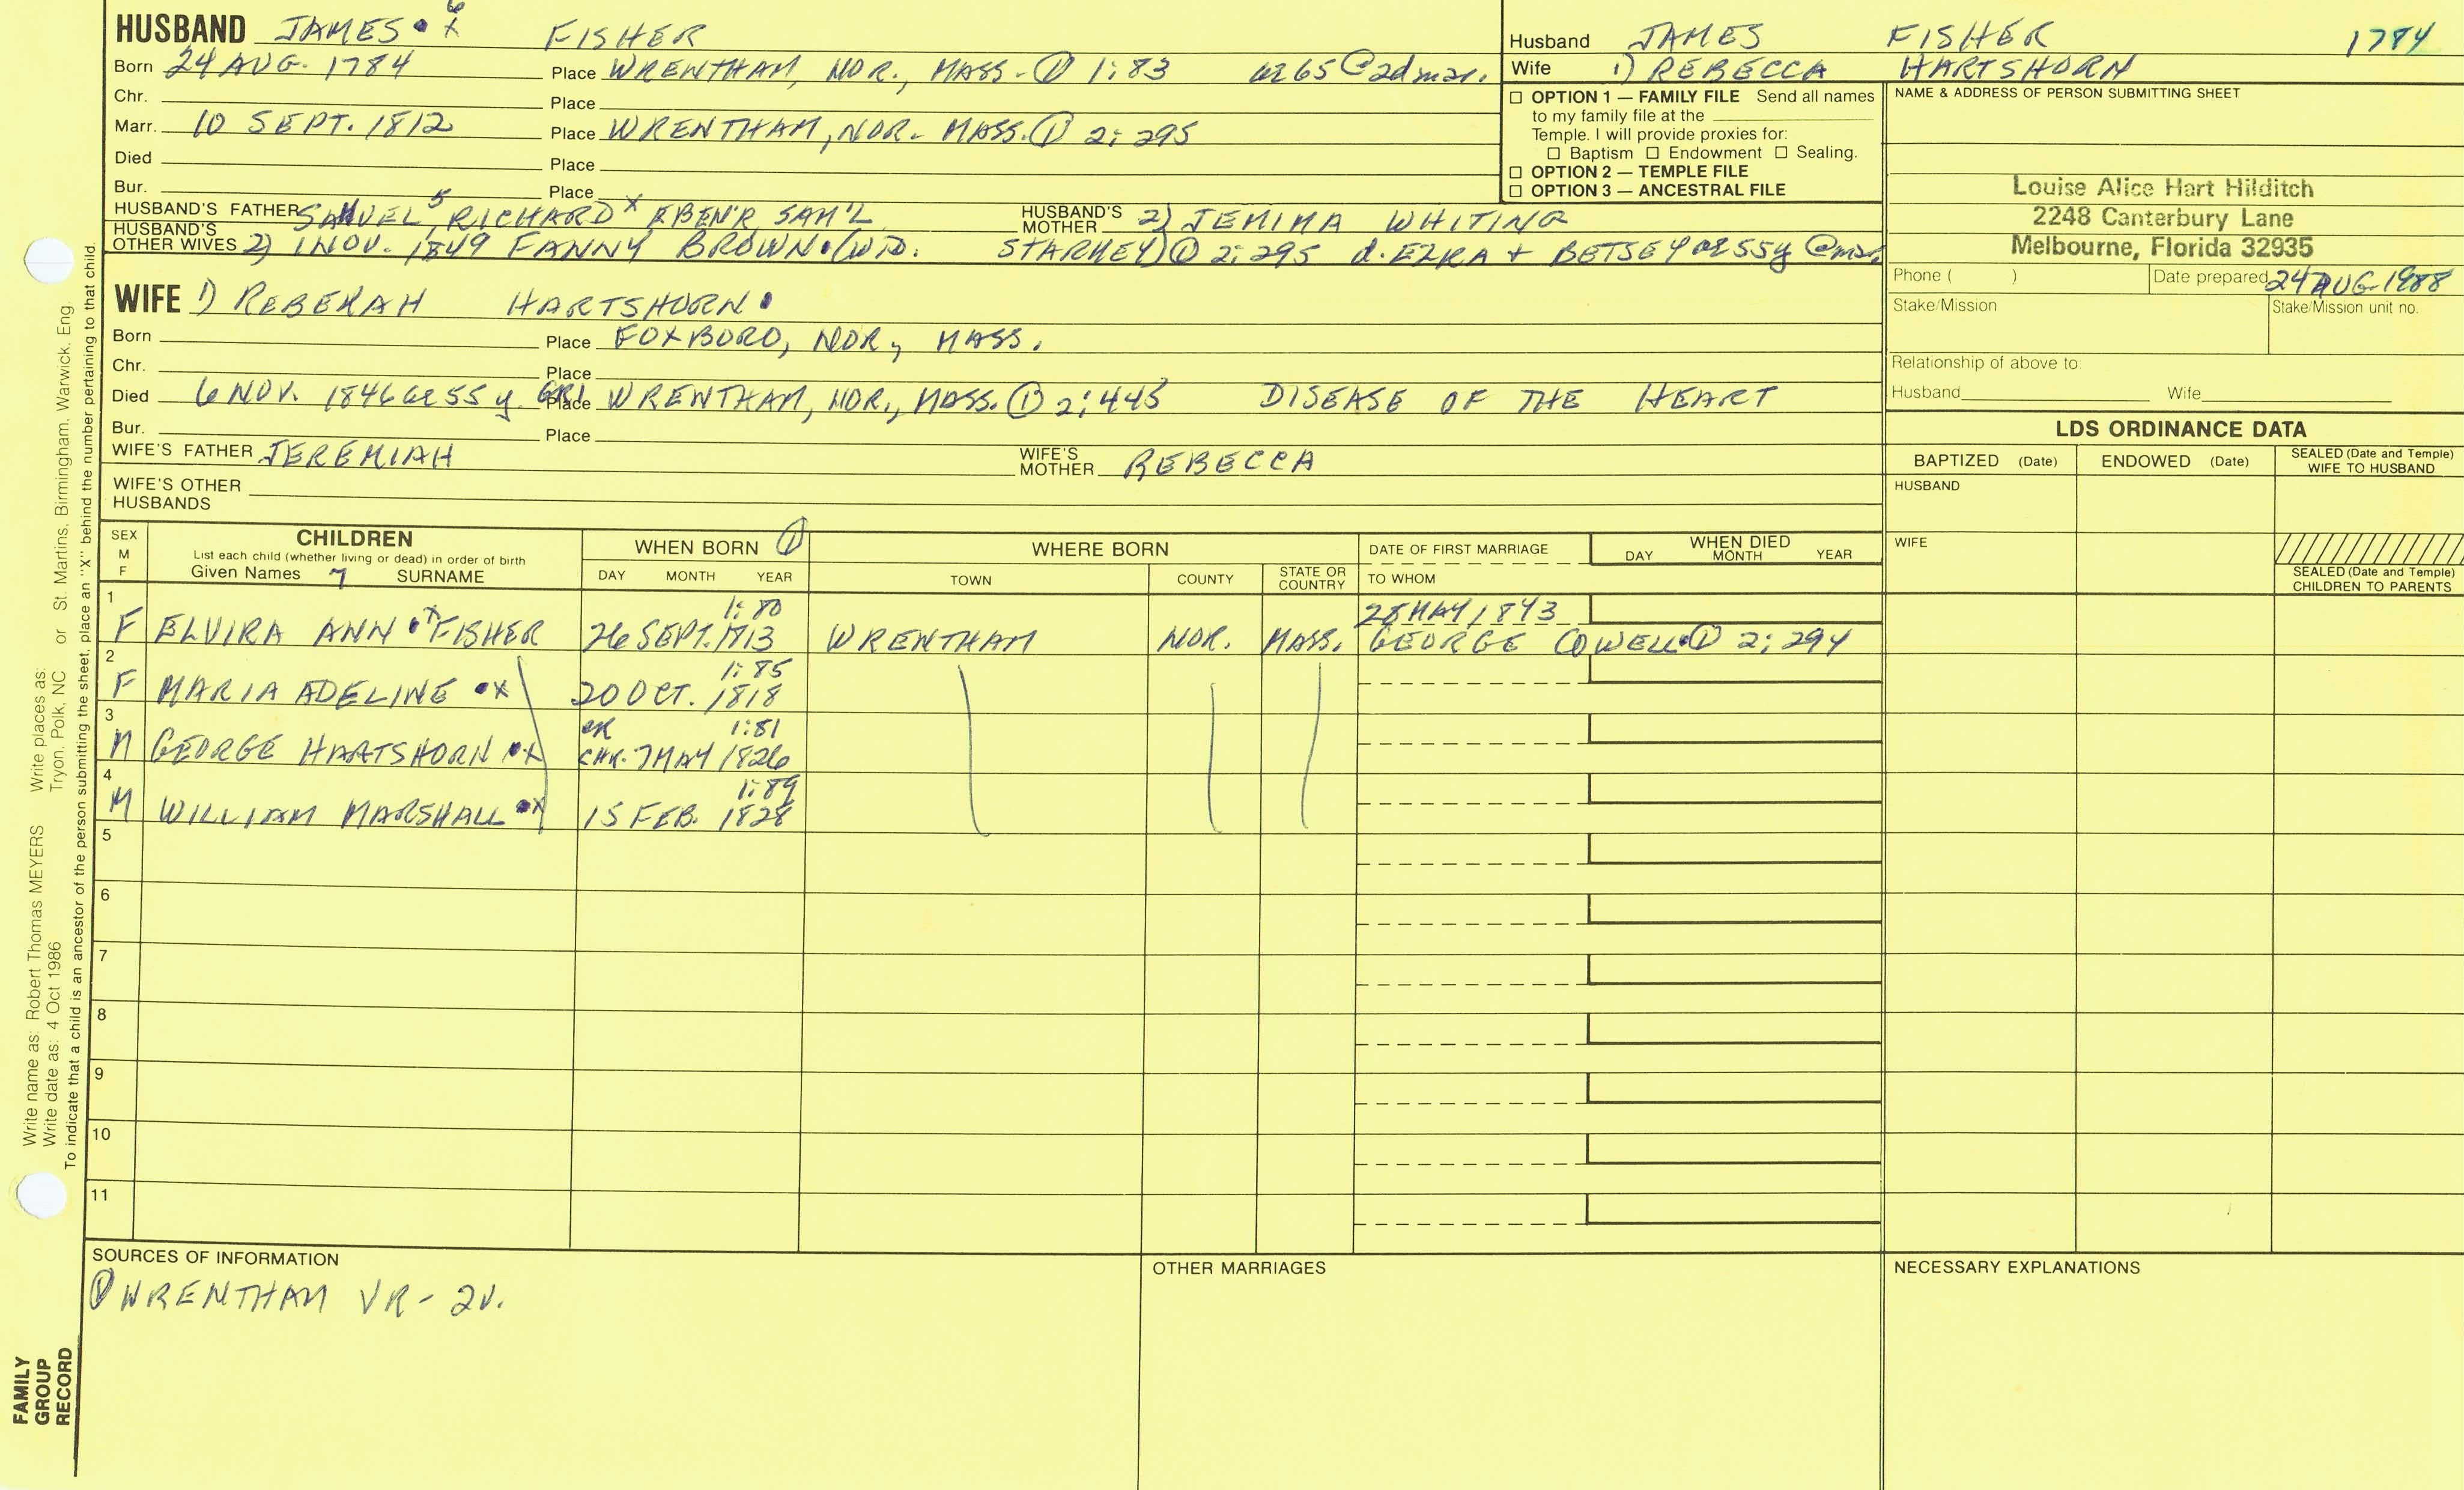 HUSBAND JAMES • 6 x FISHER
Born 24 AUG. 1784 Place WRENTHAM, NOR., MASS. - ① 1:83 æ 65 @ 2d mar.
Chr. Place
Marr. 10 SEPT. 1812 Place WRENTHAM, NOR. MASS. ① 2:295
Died Place
Bur. Place
HUSBAND'S FATHER SAMUEL 5 RICHARD x EBEN'R, SAM'L HUSBAND'S MOTHER 2) JEMIMA WHITING
HUSBAND'S OTHER WIVES 2) 1 NOV. 1849 FANNY BROWN • (WID. STARKEY) ① 2:295 d. EZRA + BETSEY æ 55y @ mar.
WIFE 1) REBEKAH HARTSHORN •
Born Place FOXBORO, NOR., MASS.
Chr. Place
Died 6 NOV. 1846 æ 55 y. GR1 Place WRENTHAM, NOR., MASS. ① 2:445 DISEASE OF THE HEART
Bur. Place
WIFE'S FATHER JEREMIAH WIFE'S MOTHER REBECCA
WIFE'S OTHER HUSBANDS
Husband JAMES FISHER 1784
Wife 1) REBECCA HARTSHORN
☐ OPTION 1 — FAMILY FILE Send all names
to my family file at the
Temple. I will provide proxies for:
☐ Baptism ☐ Endowment ☐ Sealing.
☐ OPTION 2 — TEMPLE FILE
☐ OPTION 3 — ANCESTRAL FILE
NAME & ADDRESS OF PERSON SUBMITTING SHEET
Louise Alice Hart Hilditch
2248 Canterbury Lane
Melbourne, Florida 32935
Phone ( ) Date prepared 24 AUG 1988
Stake/Mission Stake/Mission unit no.
Relationship of above to:
Husband Wife
LDS ORDINANCE DATA
BAPTIZED (Date) ENDOWED (Date) SEALED (Date and Temple) WIFE TO HUSBAND
HUSBAND
WIFE
SEALED (Date and Temple) CHILDREN TO PARENTS
SEX M F
CHILDREN
List each child (whether living or dead) in order of birth
Given Names 7 SURNAME
WHEN BORN ①
DAY MONTH YEAR
WHERE BORN
TOWN COUNTY STATE OR COUNTRY
DATE OF FIRST MARRIAGE
TO WHOM
WHEN DIED
DAY MONTH YEAR
1 1:80 28 MAY 1843
F ELVIRA ANN • x FISHER 26 SEPT. 1813 WRENTHAM NOR. MASS. GEORGE COWELL • ① 2:294
2 1:85
F MARIA ADELINE • x 20 OCT. 1818
3 CR 1:81
M GEORGE HARTSHORN • x CHR. 7 MAY 1826
4 1:89
M WILLIAM MARSHALL • x 15 FEB. 1828
5
6
7
8
9
10
11
SOURCES OF INFORMATION
① WRENTHAM VR - 2V.
OTHER MARRIAGES
NECESSARY EXPLANATIONS
Write name as: Robert Thomas MEYERS Write places as:
Write date as: 4 Oct 1986 Tryon, Polk, NC or St. Martins, Birmingham, Warwick, Eng
To indicate that a child is an ancestor of the person submitting the sheet, place an "X" behind the number pertaining to that child.
FAMILY
GROUP
RECORD